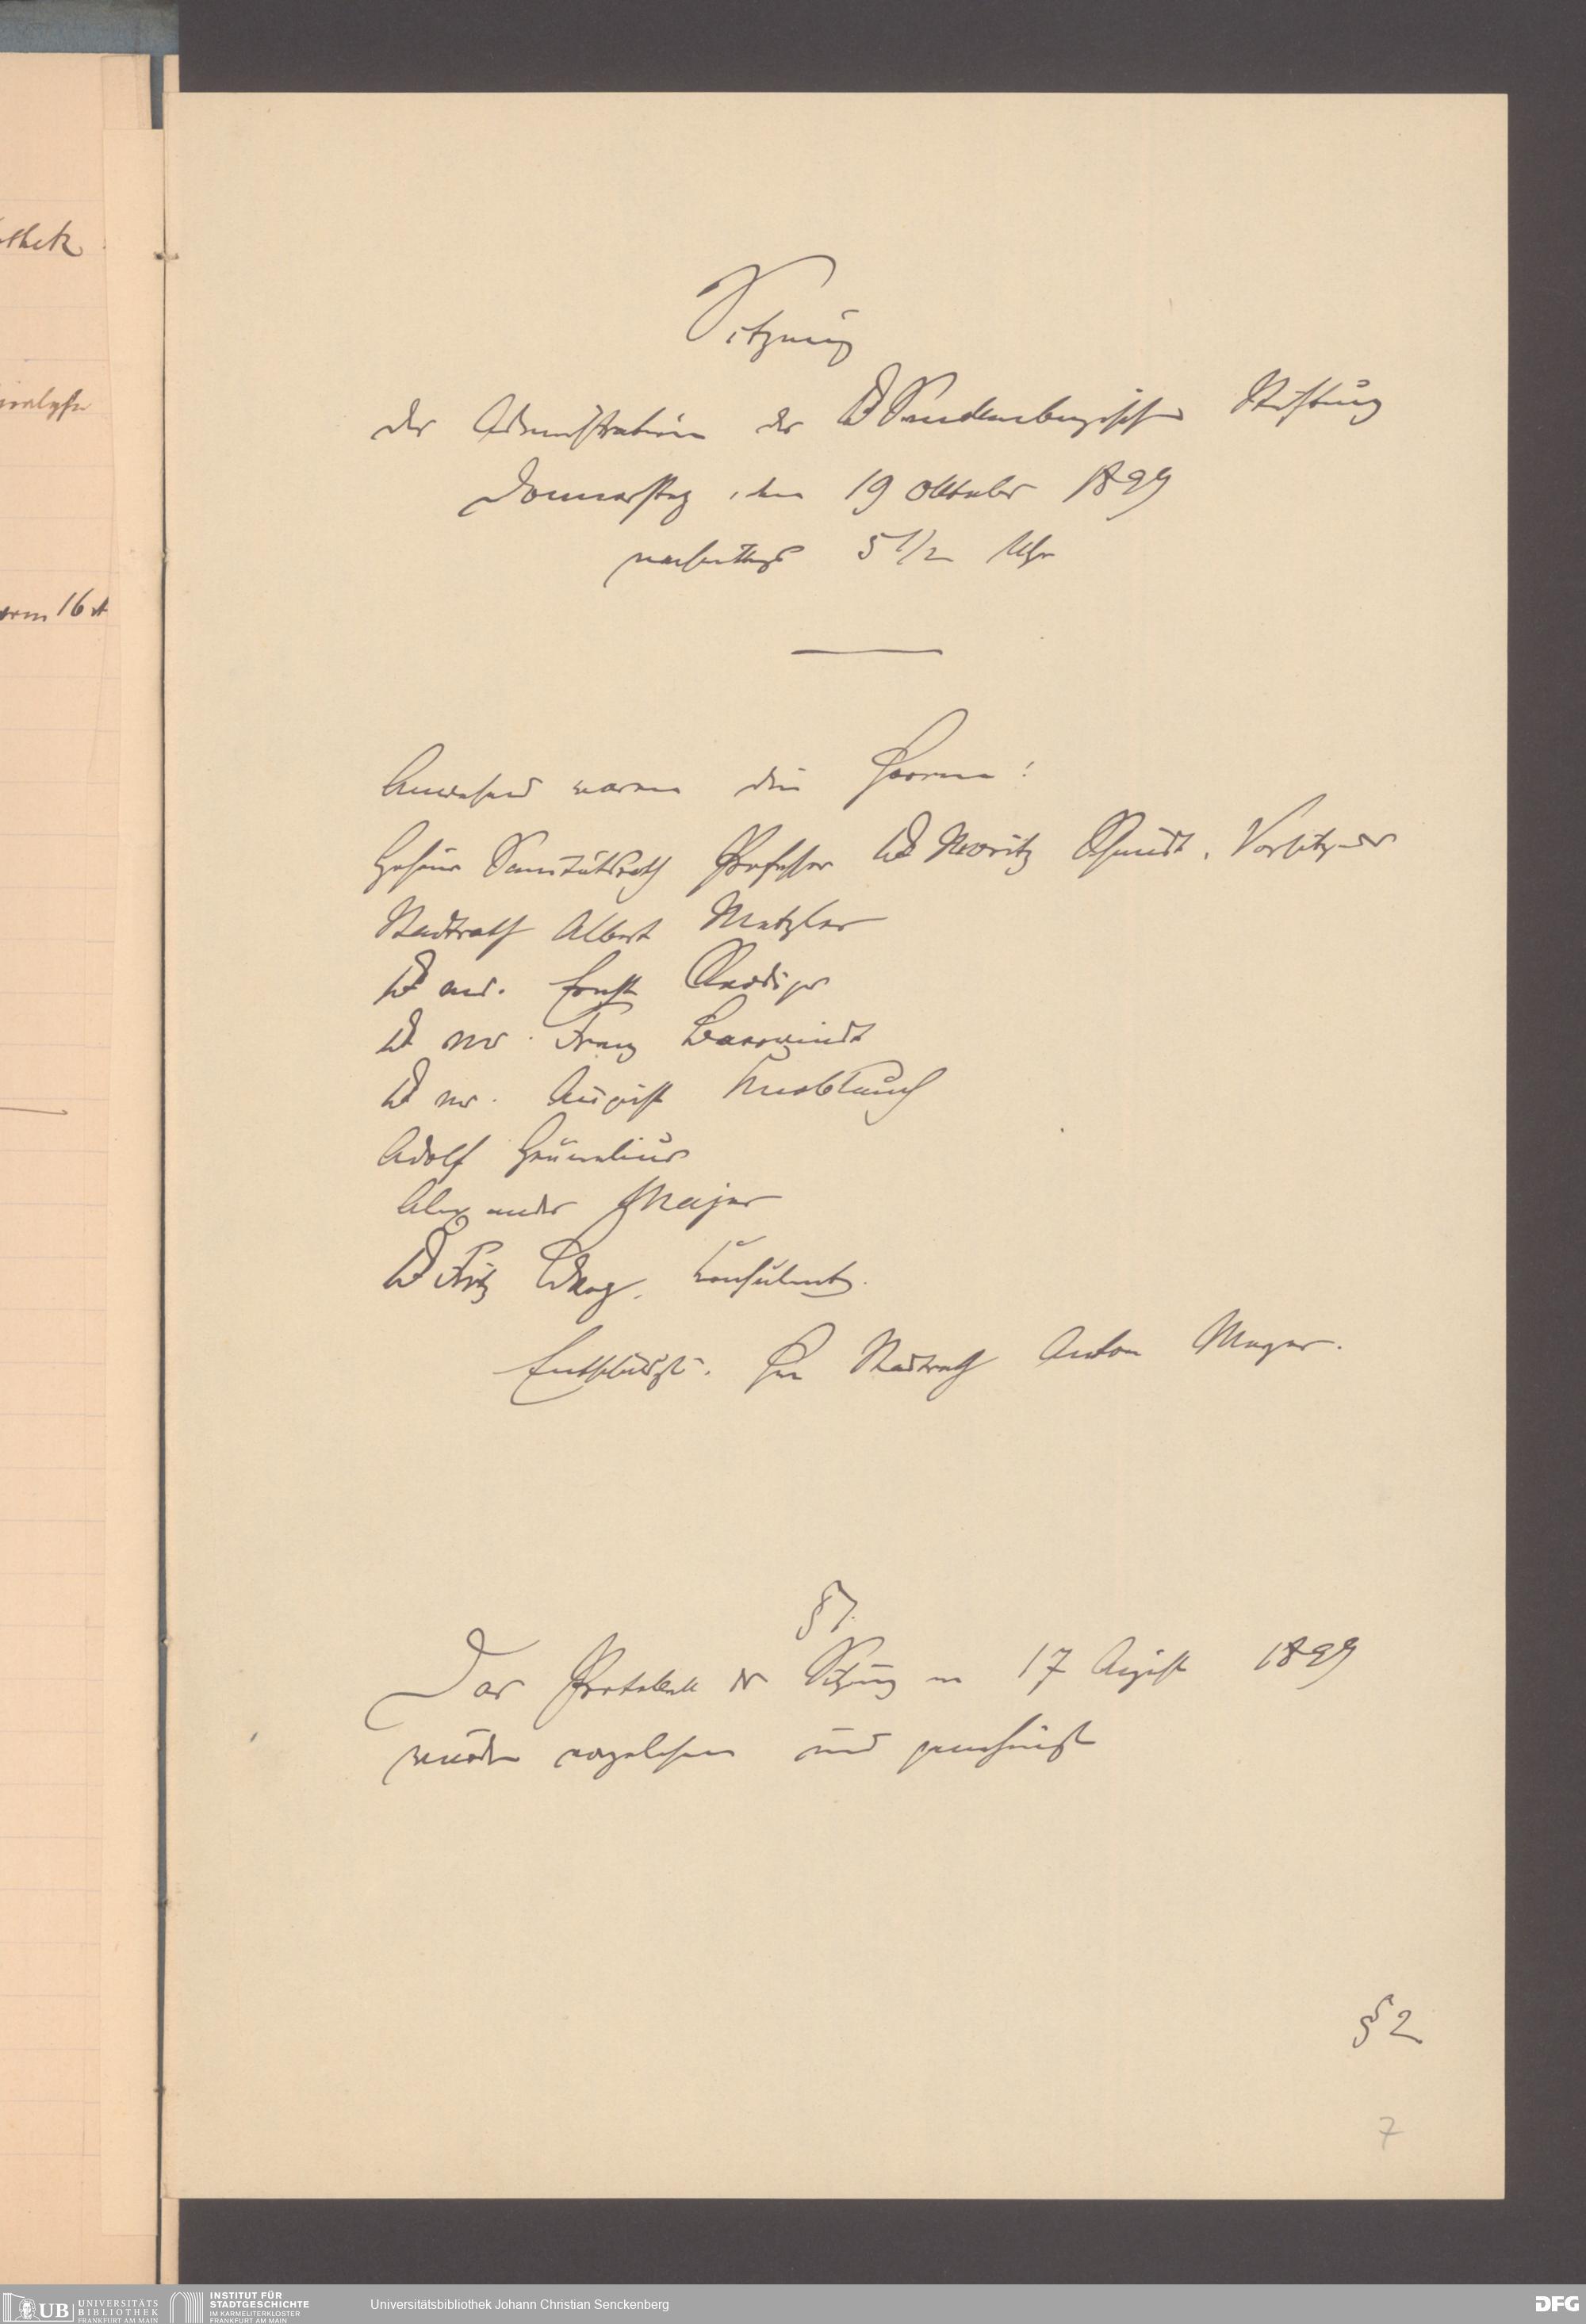 Sitzung
der Administration der Dr Senckenbergischen Stiftung
Donnerstag, den 19 Oktober 1899
nachmittags 5 1/2 Uhr
Anwesend waren die Herren:
Geheimer Sanitätsrath Professor Dr Moritz Schmidt, Vorsitzender
Stadtrath Albert Metzler
Dr med. Ernst Roediger
Dr med. Franz Baerwindt
Dr med. August Knoblauch
Adolf Grunelius
Alexander Majer
Dr Fritz Berg, Konsulent.
Entschuldigt: Herr Stadtrath Anton Meyer.
§ 1.
Das Protokoll der Sitzung vom 17 August 1899
wurde vorgelesen und genehmigt
§ 2
7
othek
orm 16 
UB UNIVERSITÄTS
BIBLIOTHEK
FRANKFURT AM MAIN
INSTITUT FÜR
STADTGESCHICHTE
IM KARMELITERKLOSTER
FRANKFURT AM MAIN
Universitätsbibliothek Johann Christian Senckenberg
DFG